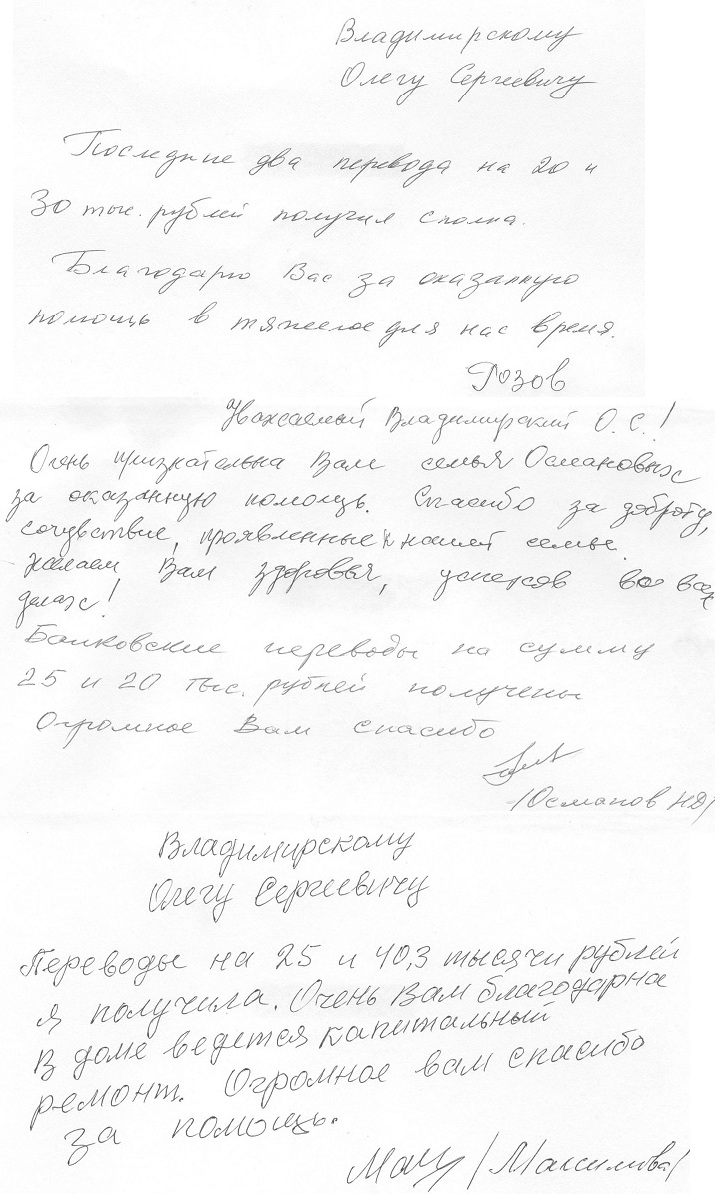 Владимирскому
Олегу Сергеевичу
Последние два перевода на 20 и
30 тыс. рублей получил сполна.
Благодарю Вас за оказанную
помощь в тяжелое для нас время.
Розов
Уважаемый Владимирский О.С.!
Очень признательна Вам семья Османовых
за оказанную помощь. Спасибо за доброту,
сочувствие, проявленные к нашей семье.
Желаем Вам здоровья, успехов во всех
делах!
Банковские переводы на сумму
25 и 20 тыс. рублей получены
Огромное Вам спасибо
/Османов НД/
Владимирскому
Олегу Сергеевичу
Переводы на 25 и 40,3 тысячи рублей
я получила. Очень Вам благодарна
В доме ведется капитальный
ремонт. Огромное вам спасибо
за помощь.
/Максимова/